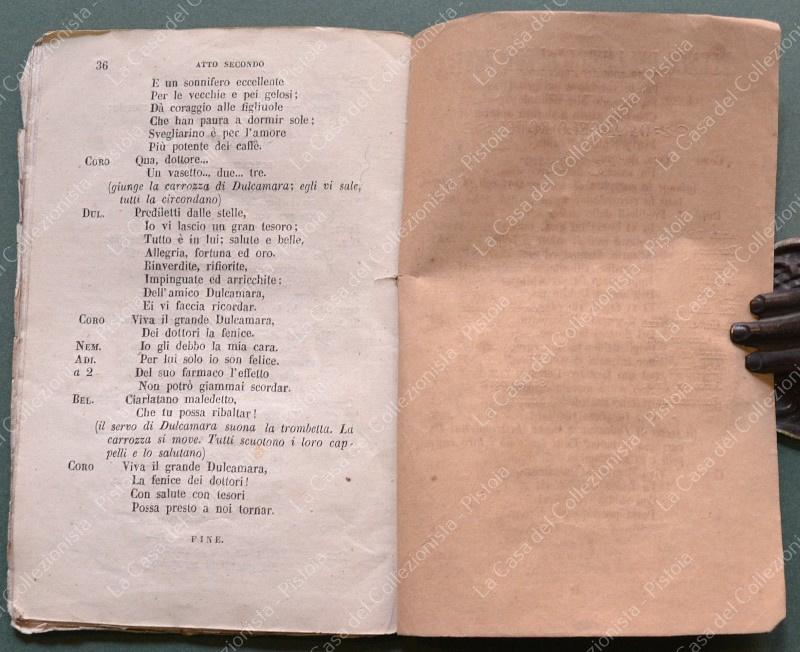 36 ATTO SECONDO
E un sonnifero eccellente
Per le vecchie e pei gelosi;
Dà coraggio alle figliuole
Che han paura a dormir sole;
Svegliarino è per l'amore
Più potente del caffè.
CORO Qua, dottore...
Un vasetto... due... tre.
(giunge la carrozza di Dulcamara; egli vi sale,
tutti la circondano)
DUL. Prediletti dalle stelle,
Io vi lascio un gran tesoro;
Tutto è in lui; salute e belle,
Allegria, fortuna ed oro.
Rinverdite, rifiorite,
Impinguate ed arricchite:
Dell'amico Dulcamara,
Ei vi faccia ricordar.
CORO Viva il grande Dulcamara,
Dei dottori la fenice.
NEM. Io gli debbo la mia cara.
ADI. Per lui solo io son felice.
a 2 Del suo farmaco l'effetto
Non potrò giammai scordar.
BEL. Ciarlatano maledetto,
Che tu possa ribaltar!
(il servo di Dulcamara suona la trombetta. La
carrozza si move. Tutti scuotono i loro cap-
pelli e lo salutano)
CORO Viva il grande Dulcamara,
La fenice dei dottori!
Con salute con tesori
Possa presto a noi tornar.
FINE.
La Casa del Collezionista - Pistoia